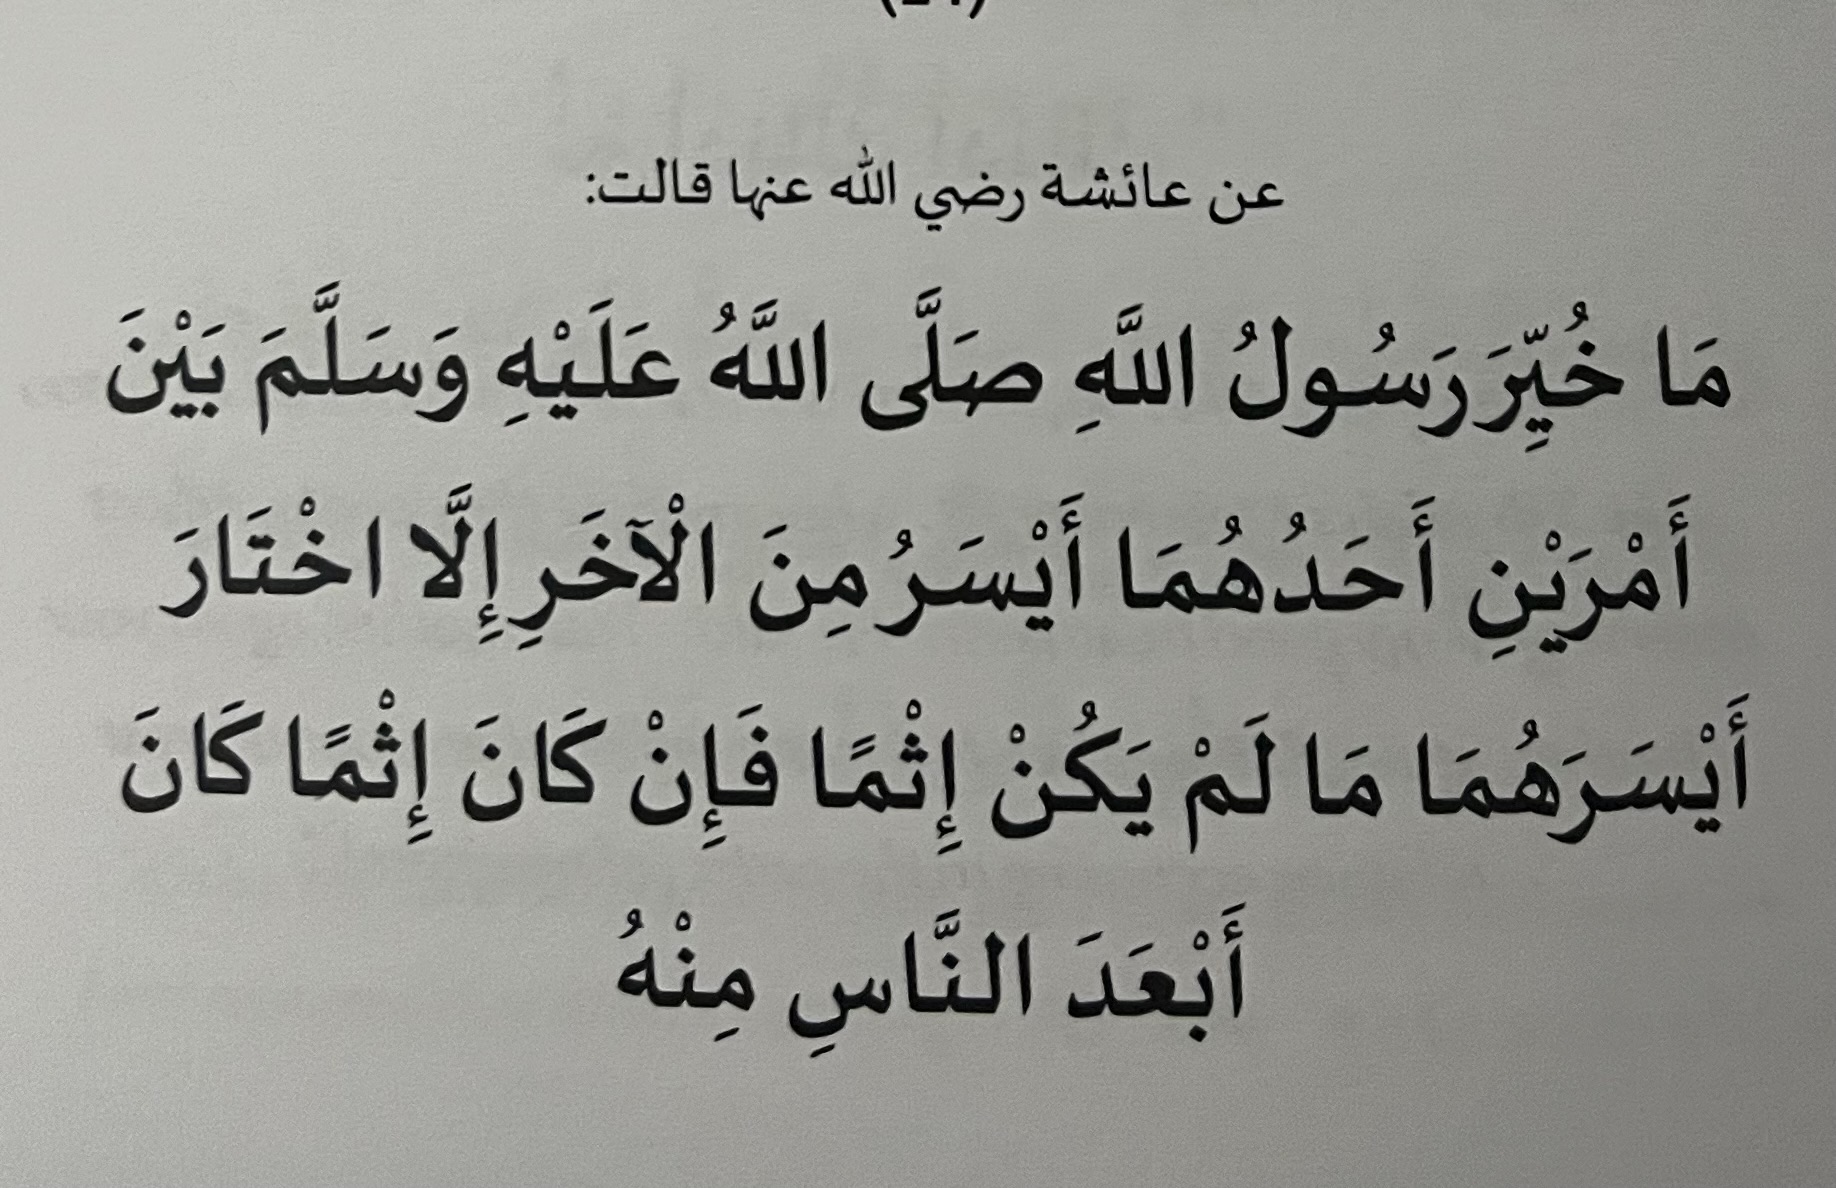 عن عائشة رضي الله عنها قالت:
مَا خُيِّرَ رَسُولُ اللَّهِ صَلَّى اللَّهُ عَلَيْهِ وَسَلَّمَ بَيْنَ
أَمْرَيْنِ أَحَدُهُمَا أَيْسَرُ مِنَ الْآخَرِ إِلَّا اخْتَارَ
أَيْسَرَهُمَا مَا لَمْ يَكُنْ إِثْمًا فَإِنْ كَانَ إِثْمًا كَانَ
أَبْعَدَ النَّاسِ مِنْهُ